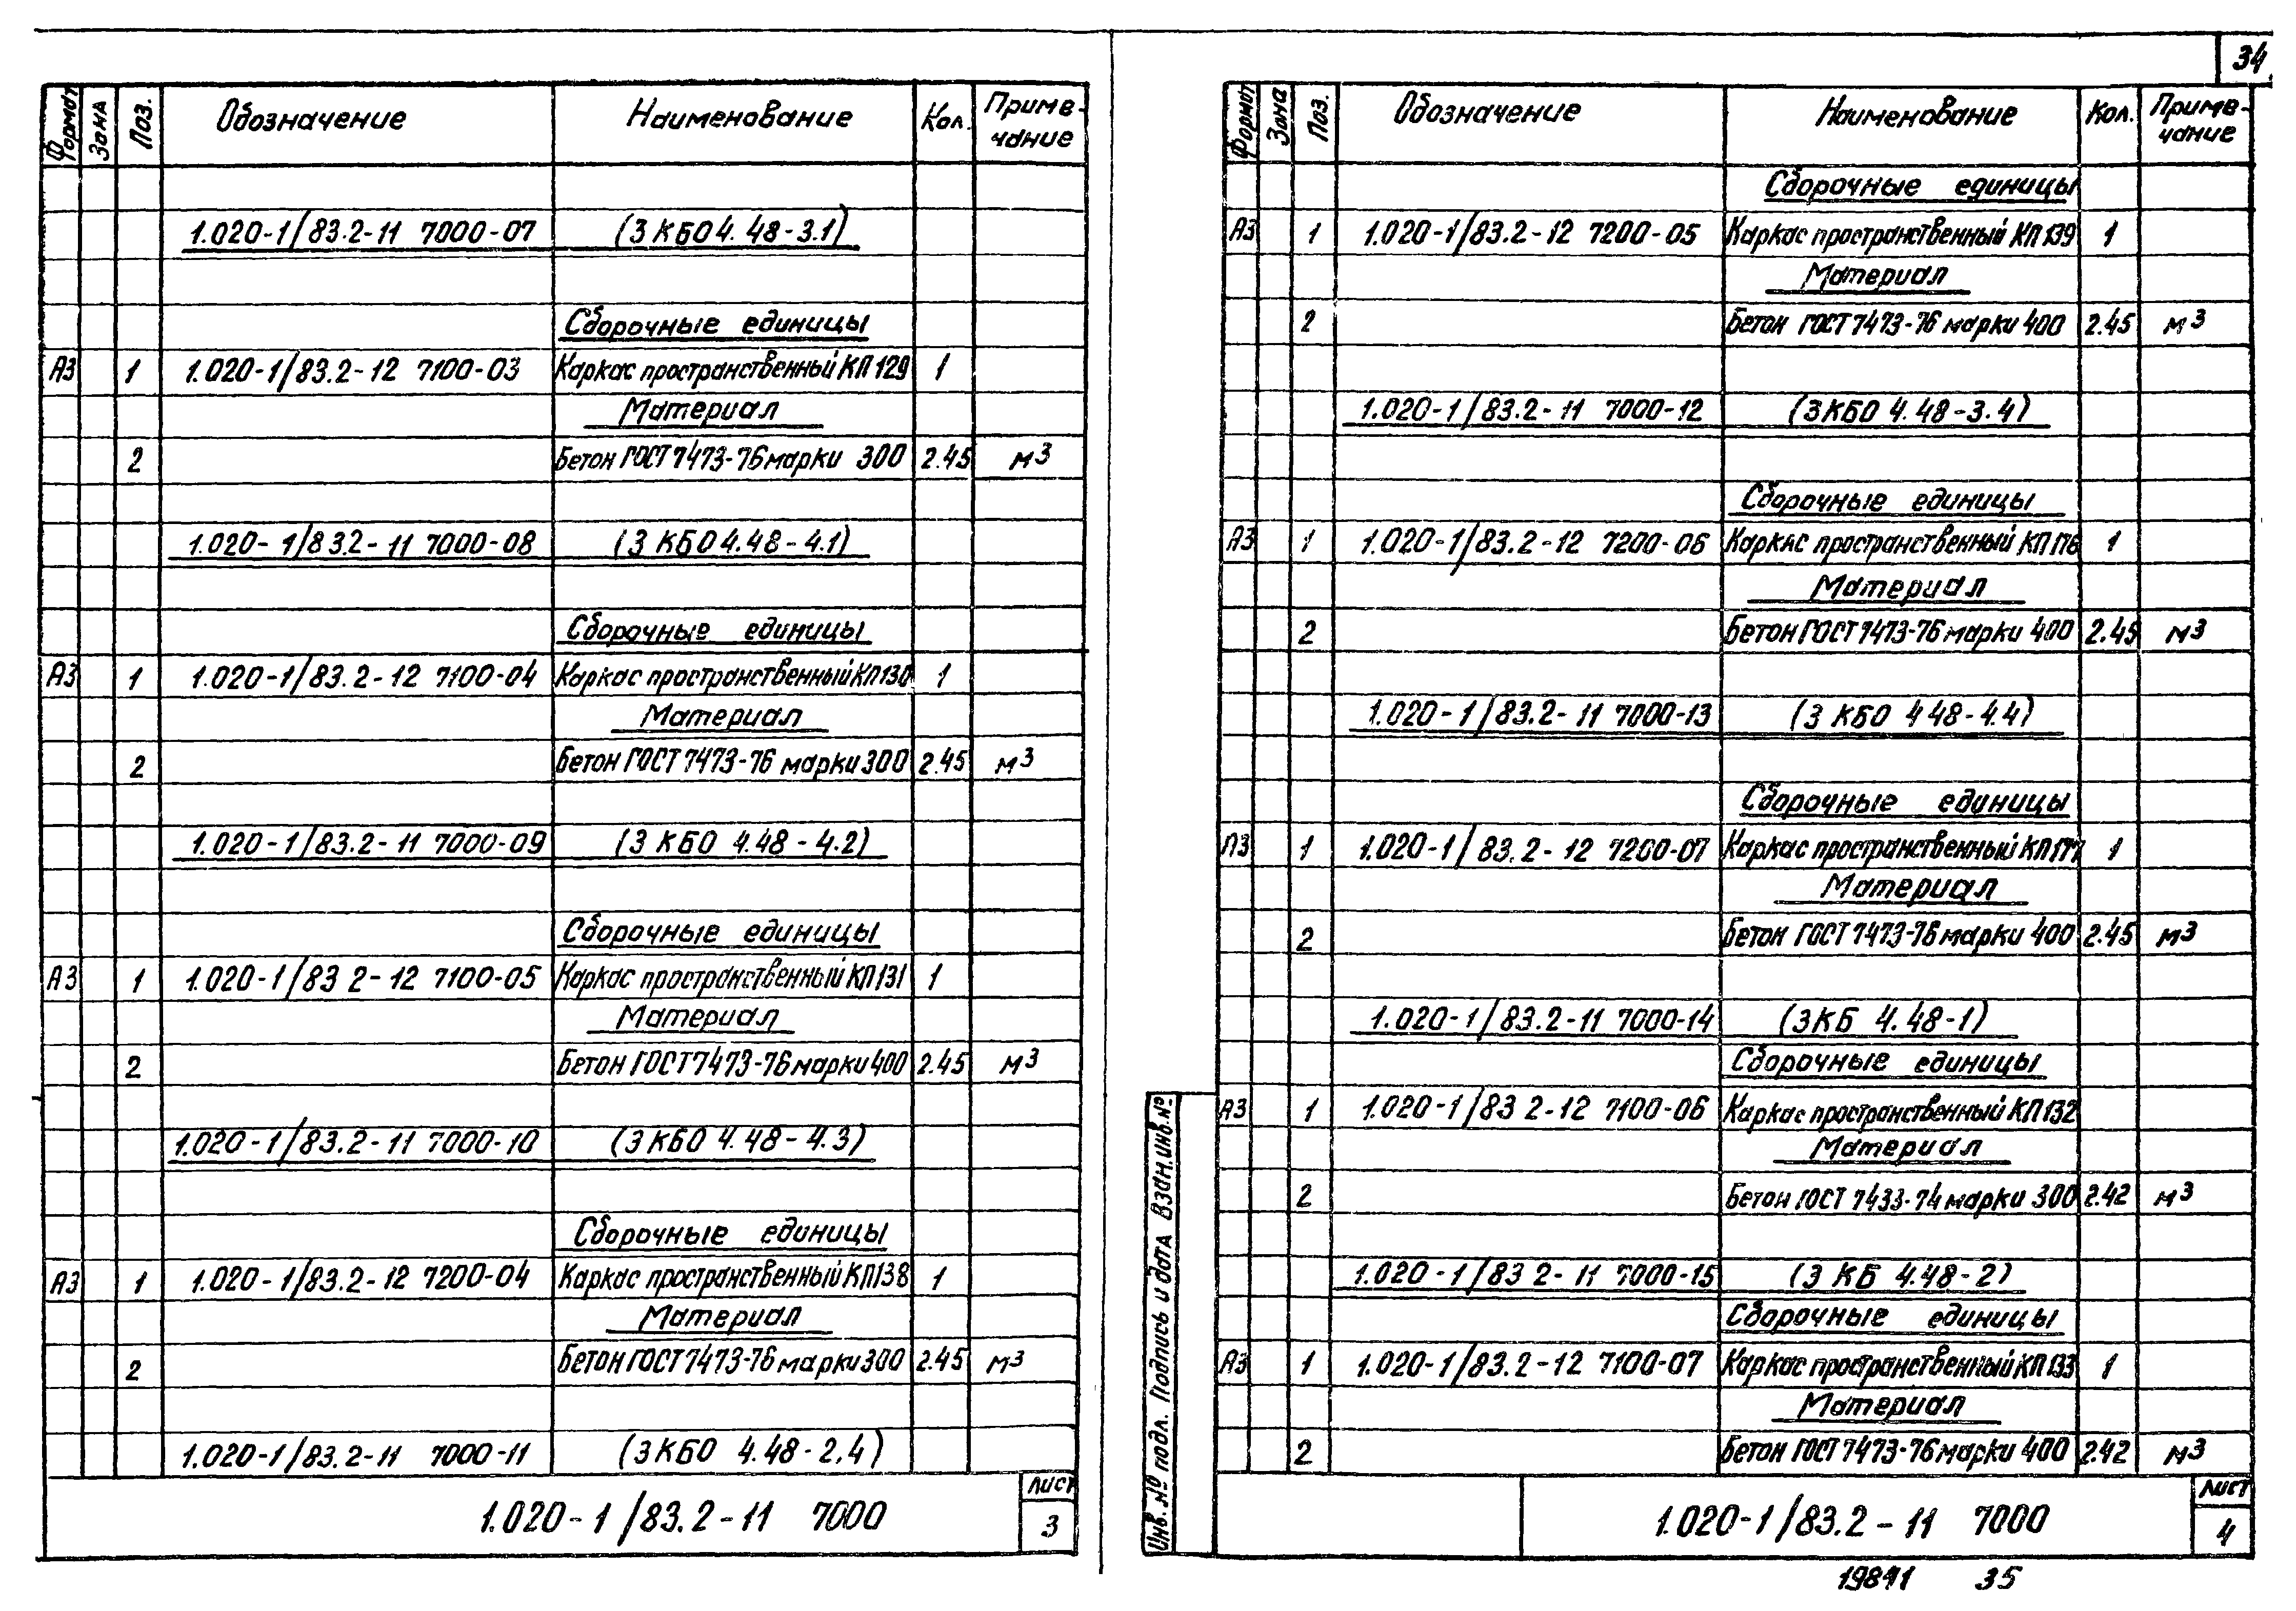 34
Формат Зона Поз. Обозначение Наименование Кол. Приме-
чание
1.020-1/83.2-11 7000-07 (3 КБО 4.48-3.1)
Сборочные единицы
А3 1 1.020-1/83.2-12 7100-03 Каркас пространственный КП 129 1
Материал
2 Бетон ГОСТ 7473-76 марки 300 2.45 м3
1.020-1/83.2-11 7000-08 (3 КБО 4.48-4.1)
Сборочные единицы
А3 1 1.020-1/83.2-12 7100-04 Каркас пространственный КП130 1
Материал
2 Бетон ГОСТ 7473-76 марки 300 2.45 м3
1.020-1/83.2-11 7000-09 (3 КБО 4.48-4.2)
Сборочные единицы
А3 1 1.020-1/83 2-12 7100-05 Каркас пространственный КП131 1
Материал
2 Бетон ГОСТ 7473-76 марки 400 2.45 м3
1.020-1/83.2-11 7000-10 (3 КБО 4.48-4.3)
Сборочные единицы
А3 1 1.020-1/83.2-12 7200-04 Каркас пространственный КП138 1
Материал
2 Бетон ГОСТ 7473-76 марки 300 2.45 м3
1.020-1/83.2-11 7000-11 (3 КБО 4.48-2.4)
1.020-1/83.2-11 7000
Лист
3
Формат Зона Поз. Обозначение Наименование Кол. Приме-
чание
Сборочные единицы
А3 1 1.020-1/83.2-12 7200-05 Каркас пространственный КП 139 1
Материал
2 Бетон ГОСТ 7473-76 марки 400 2.45 м3
1.020-1/83.2-11 7000-12 (3 КБО 4.48-3.4)
Сборочные единицы
А3 1 1.020-1/83.2-12 7200-06 Каркас пространственный КП 176 1
Материал
2 Бетон ГОСТ 7473-76 марки 400 2.45 м3
1.020-1/83.2-11 7000-13 (3 КБО 4 48-4.4)
Сборочные единицы
А3 1 1.020-1/83.2-12 7200-07 Каркас пространственный КП177 1
Материал
2 Бетон ГОСТ 7473-76 марки 400 2.45 м3
1.020-1/83.2-11 7000-14 (3КБ 4.48-1)
Сборочные единицы
А3 1 1.020-1/83 2-12 7100-06 Каркас пространственный КП132
Материал
2 Бетон ГОСТ 7433-74 марки 300 2.42 м3
1.020-1/83 2-11 7000-15 (3 КБ 4.48-2)
Сборочные единицы
А3 1 1.020-1/83.2-12 7100-07 Каркас пространственный КП133 1
Материал
2 Бетон ГОСТ 7473-76 марки 400 2.42 м3
Инв. № подл. Подпись и дата Взам.инв.№
1.020-1/83.2-11 7000
Лист
4
35